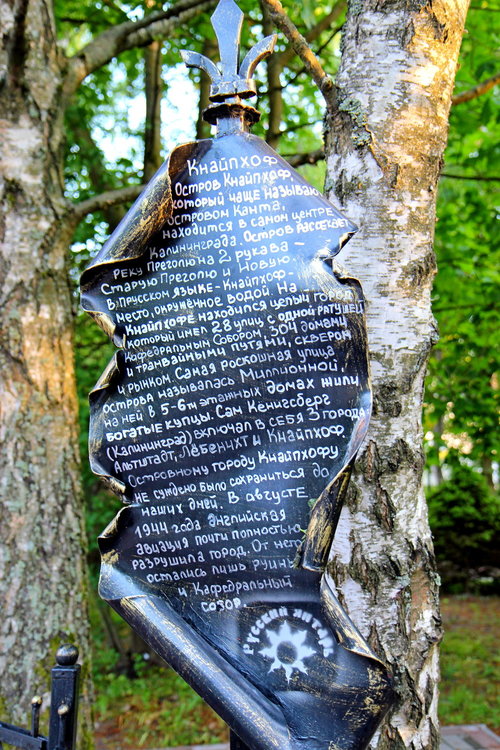 Кнайпхоф
Остров Кнайпхоф,
который чаще называю
островом Канта,
находится в самом центре
Калининграда. Остров рассекает
реку Преголю на 2 рукава –
Старую Преголю и Новую.
В прусском языке – Кнайпхоф –
место, окружённое водой. На
Кнайпхофе находился целый город
который имел 28 улиц с одной ратушей
Кафедральным Собором, 304 домами
и трамвайными путями, сквером
и рынком. Самая роскошная улица
острова называлась Миллионной,
на ней в 5-6ти этажных домах жили
богатые купцы. Сам Кёнигсберг
(Калининград) включал в себя 3 города
Альтштадт, Лёбенихт и Кнайпхоф
Островному городу Кнайпхофу
не суждено было сохраниться до
наших дней. В августе
1944 года английская
авиация почти полностью
разрушила город. От него
остались лишь руины
и Кафедральный
собор.
Русский янтарь